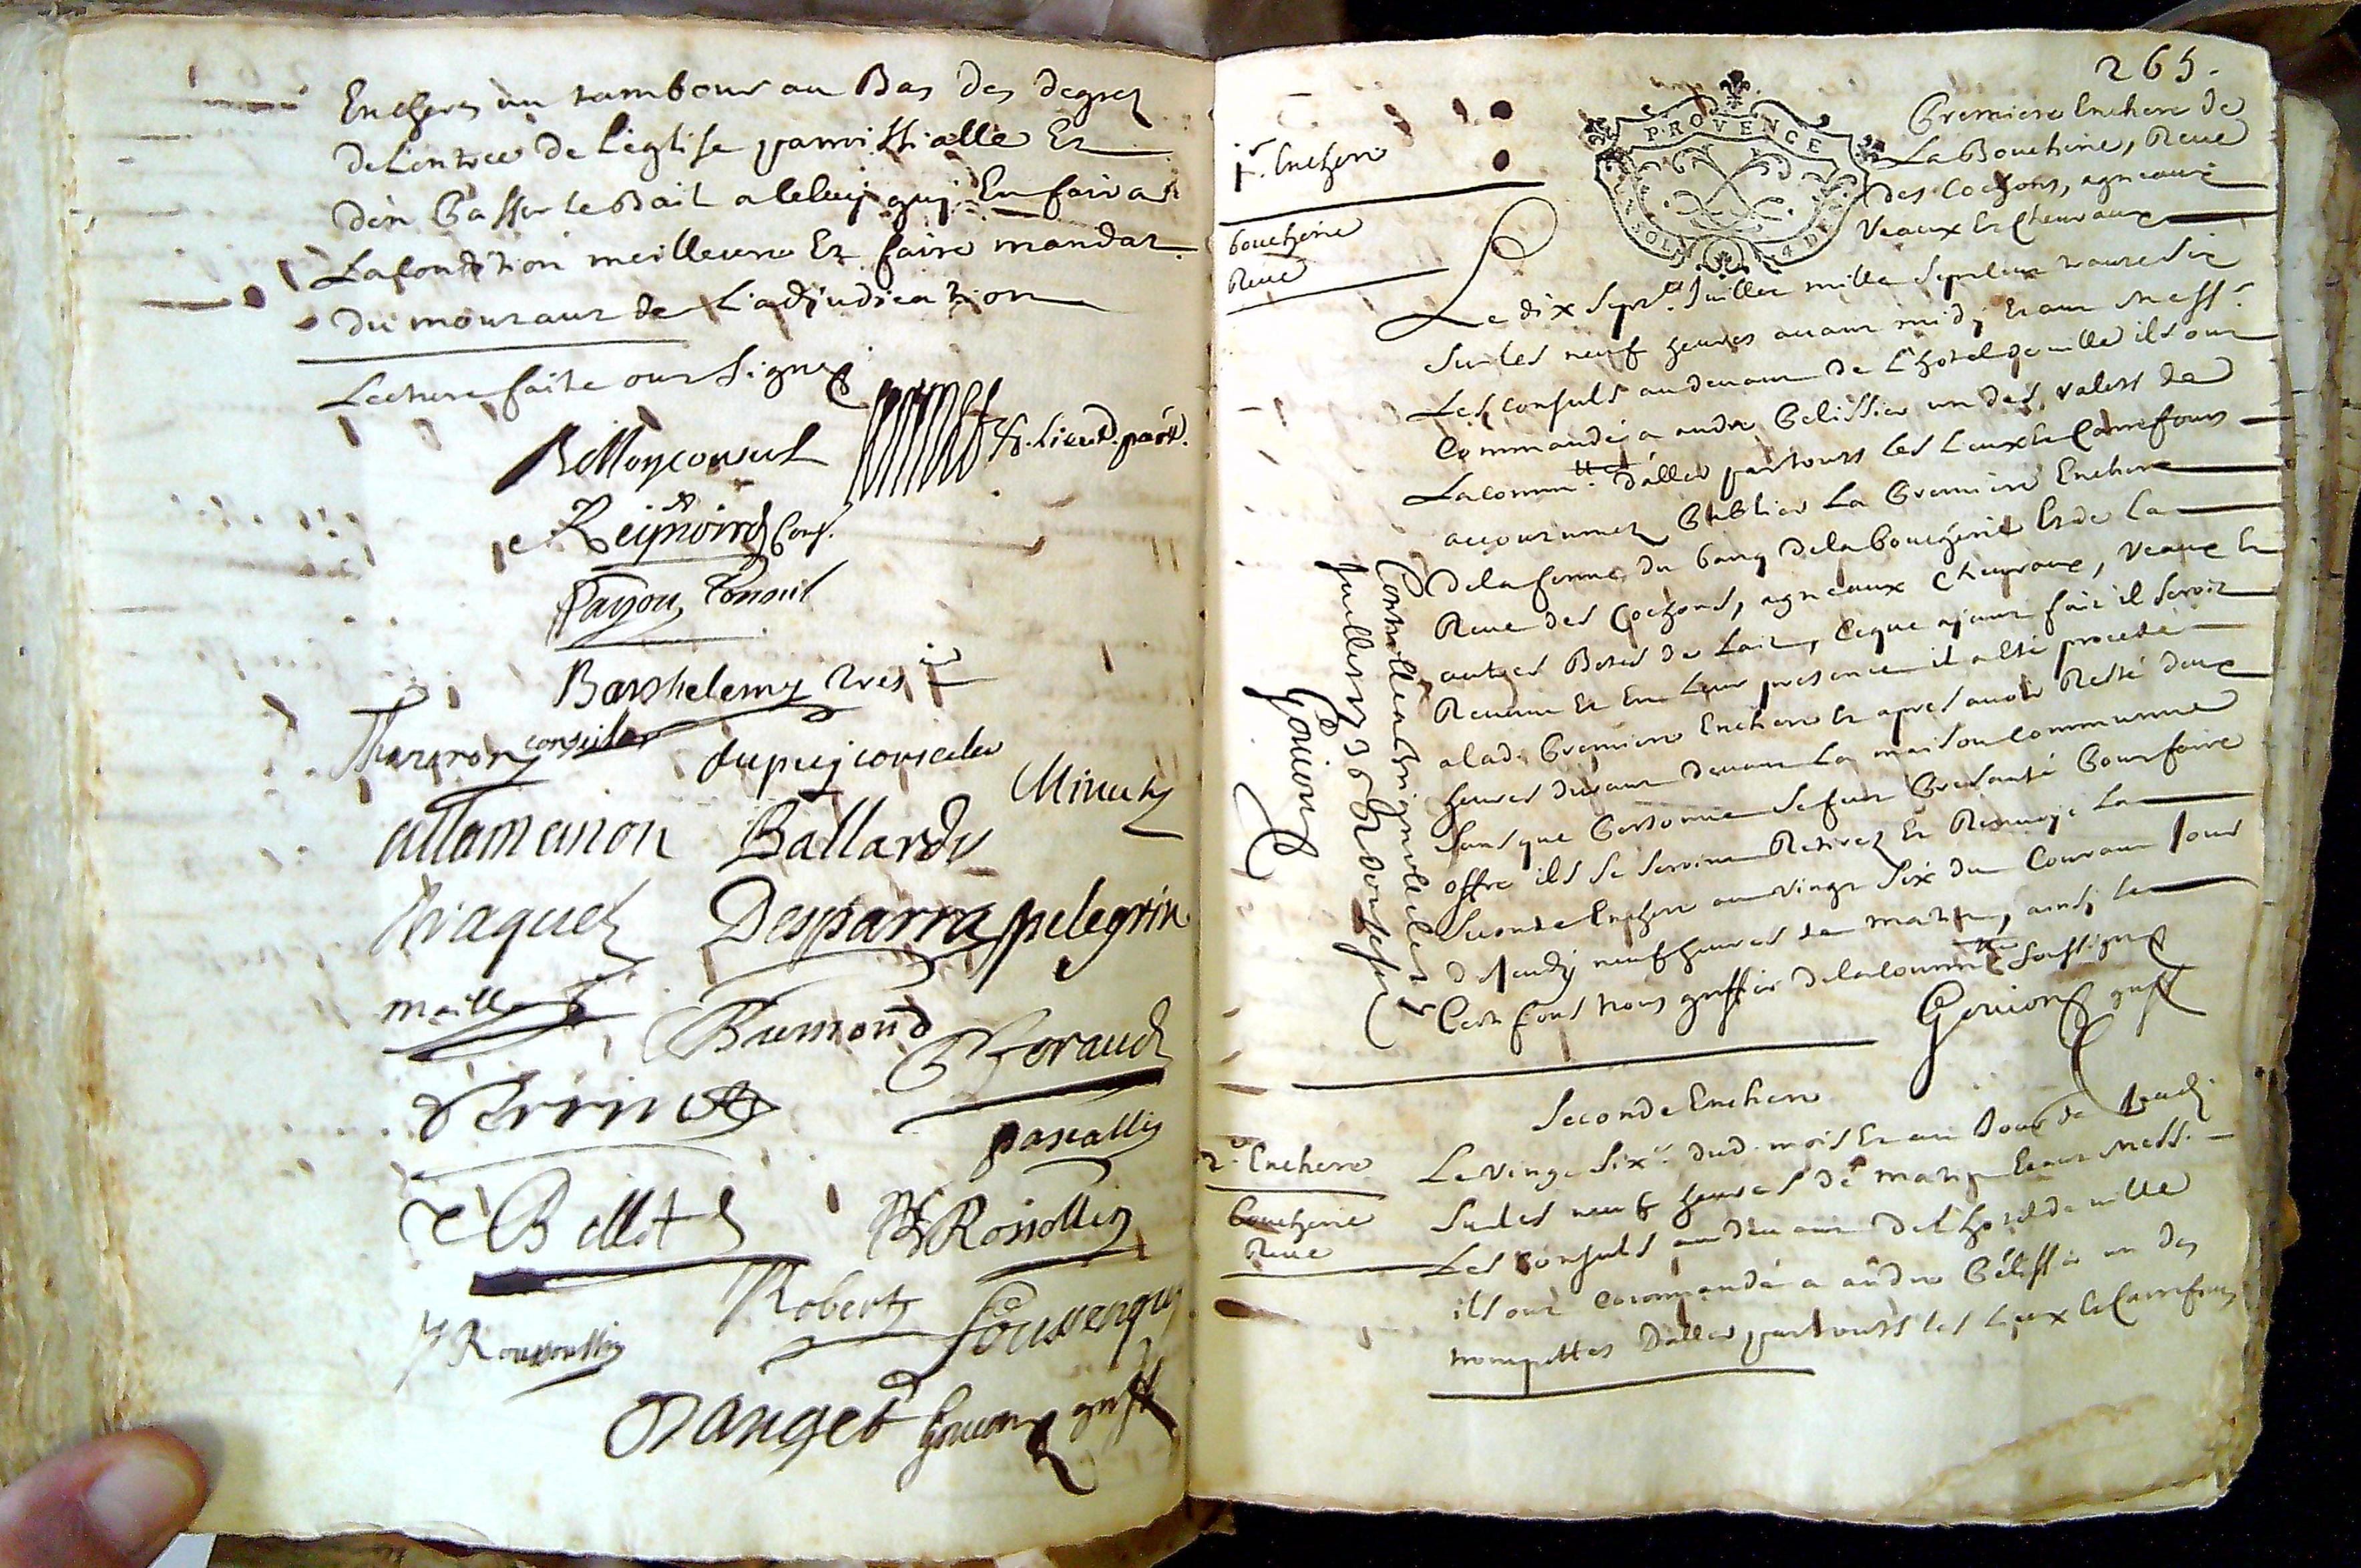 Encheres un tambour au Bas des degrez
de Lentree de Leglise parroissialle Et
den Passer le Bail a Celuy qui En faira
La Condition meilleure Et faire mandat
du montant de L'adjudication
Lecture faite ont signez
consul
Lieut. part.
Reynoird Cons.
Payou Consul
Barthelemy tres.
conseiler
dupuy conseiler
Minuty
allamanon Ballardy
Desparra pelegrin
maille
Brémond
Giraud
Perrin
pascallis
Billot
Rossollin
Robert
J Roussoullin
Foussenquy
Danget Gouion greff
265.
1.r Enchere
boucherie
Reue
Premiere Enchere de
La Boucherie, Reue
des Cochons, agneaux
Veaux Et Cheuraux
PROVENCE
SOLS 4 DE
Le dix Sept.e Juillet mille Sept Cens trante Six
Sur les neuf heures auant midy Etant Mess.rs
Les Consuls audeuant de L'hotel de uille ils ont
Commandé a andre Pelissier un des valets de
La Comm.té d'aller partouts les Lieux Et Carrefours
accoutumez Publier La Premiere Enchere
de la ferme du banq de la boucherie Et de la
Reue des Cochons, agneaux Cheuraux, Veaux Et
autres Betes de Lait, Ce que ajant fait il seroit
Reuenu Et En Leur presence il a Eté procedé
a lad. Premiere Enchere Et apres auoir Resté deux
heures durant deuant La maison Commune
sans que Personne se fut Presanté Pour faire
offre ils se seroint Retirez Et Renuoyé La
Seconde Enchere au vingt Six du Courant Jour
de Jeudy neuf heures de matin, ainsi Le
Certifions nous greffier de la Comm.té soussigné
Gouion greff
Controllé a Brignolle le 19
juillet 1736 R douse s.
Gouion
Seconde Enchere
2.e Enchere
boucherie
Reue
Le vingt Six.e dud. mois Et an Jour de Jeudi
Sur les neuf heures de matin Etant Mess.
Les Consuls audeuant de L'hotel de uille
ils ont Commandé a andre Pelissier un des
trompettes d'aller partouts les Lieux Et Carrefours